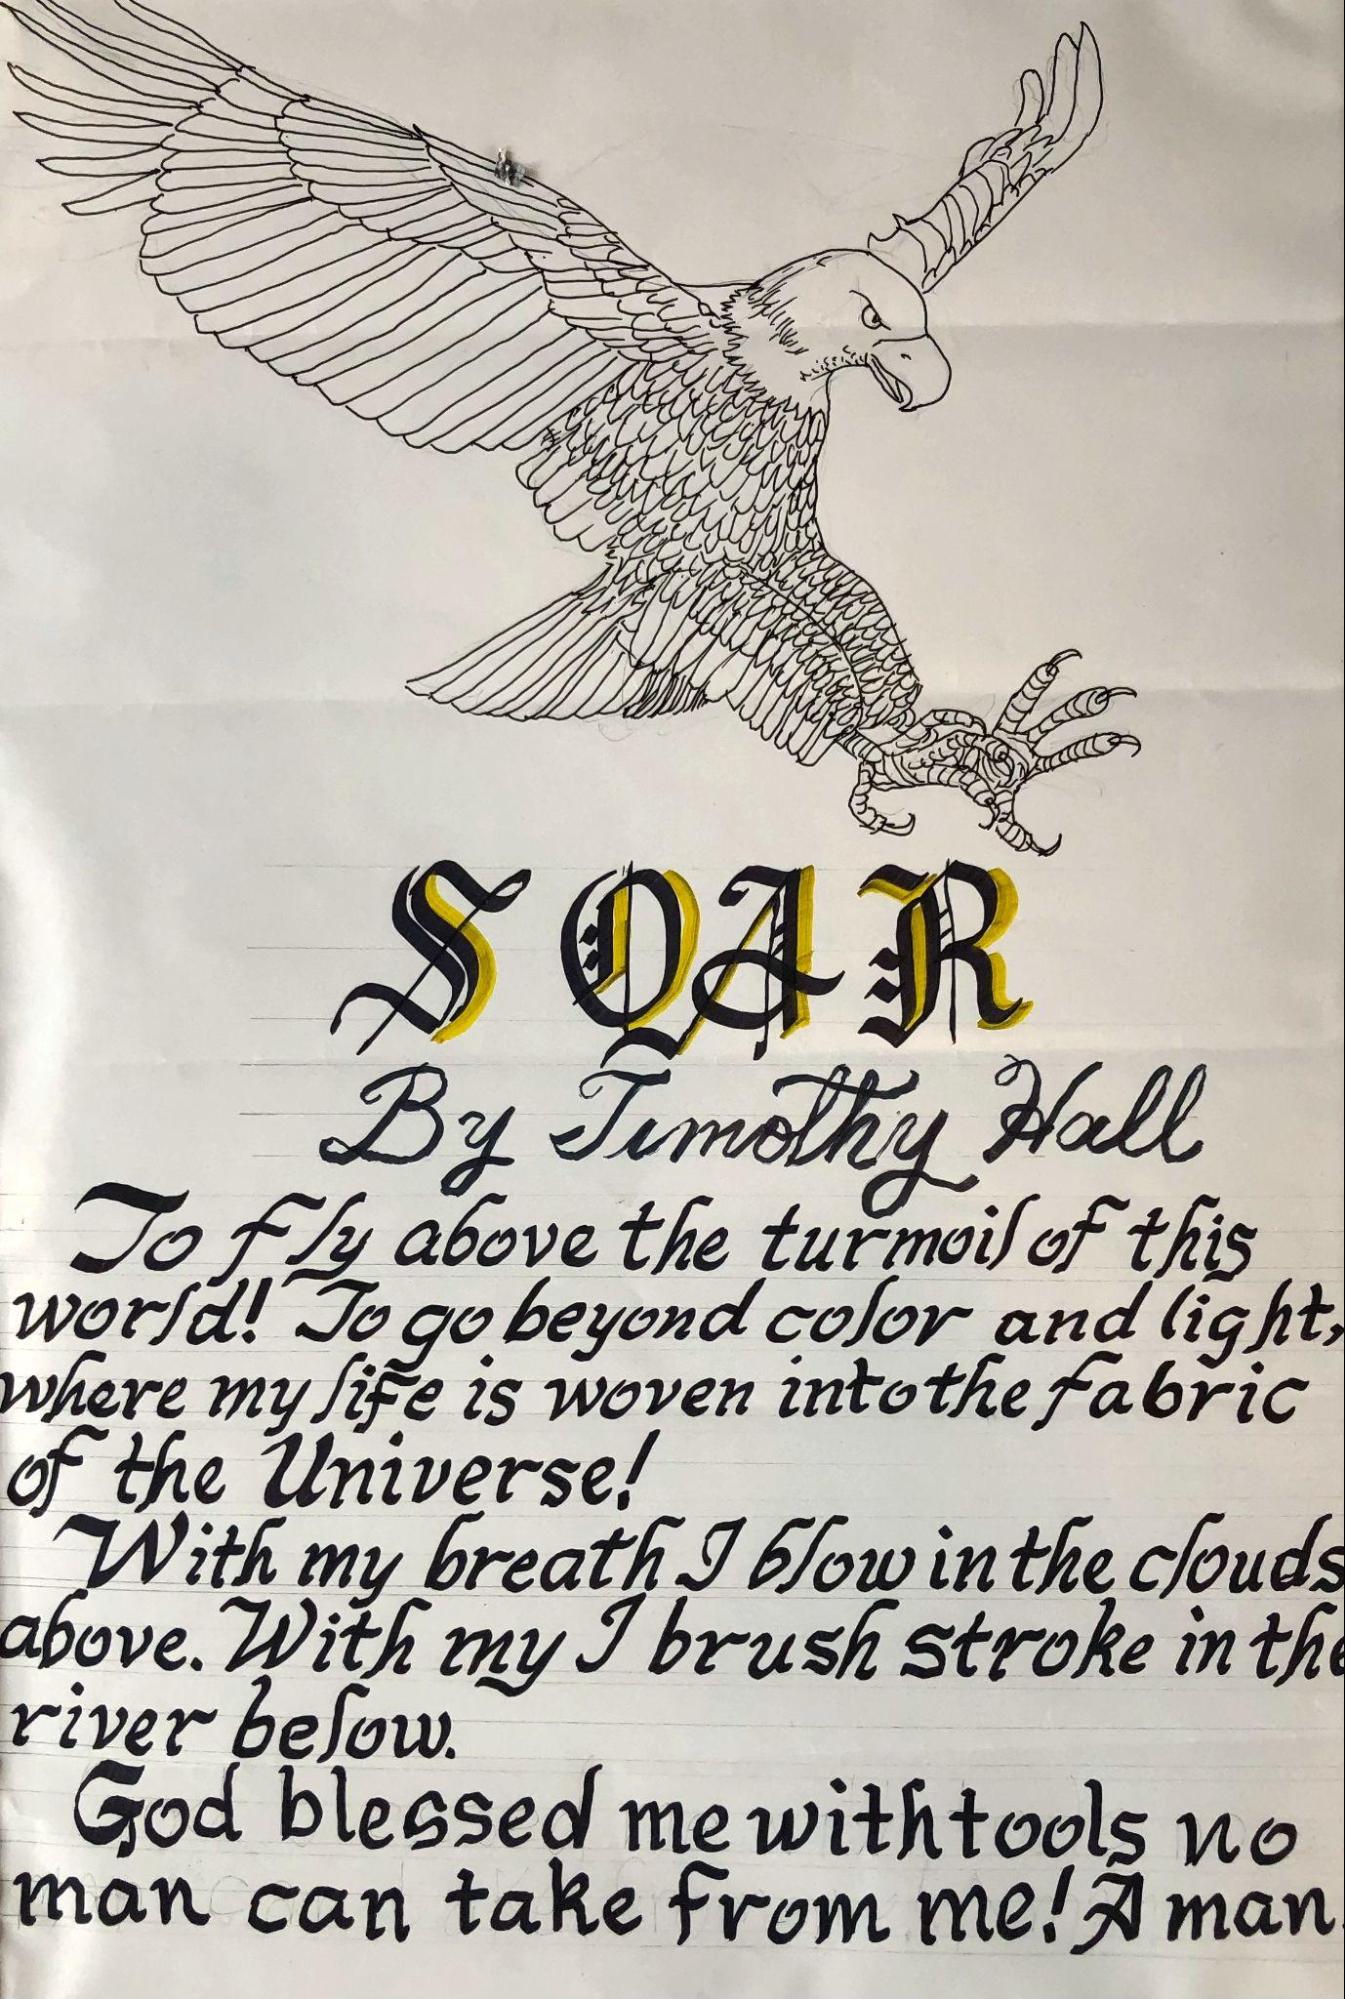 SOAR
By Timothy Hall
To fly above the turmoil of this
world! To go beyond color and light,
where my life is woven into the fabric
of the Universe!
With my breath I blow in the clouds
above. With my I brush stroke in the
river below.
God blessed me with tools no
man can take from me! A man